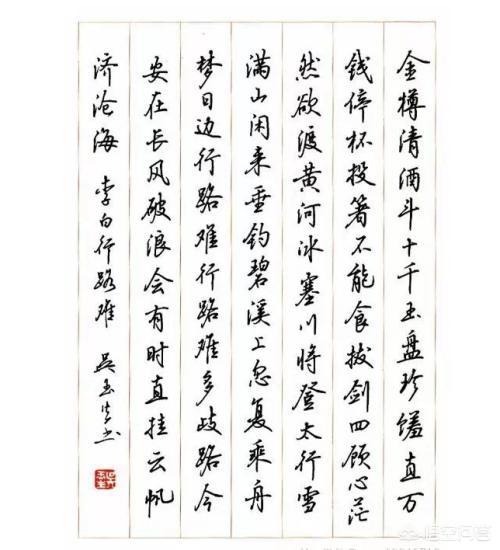 金樽清酒斗十千玉盘珍馐直万
钱停杯投箸不能食拔剑四顾心茫
然欲渡黄河冰塞川将登太行雪
满山闲来垂钓碧溪上忽复乘舟
梦日边行路难行路难多歧路今
安在长风破浪会有时直挂云帆
济沧海 李白行路难 吴玉生书
悟空问答